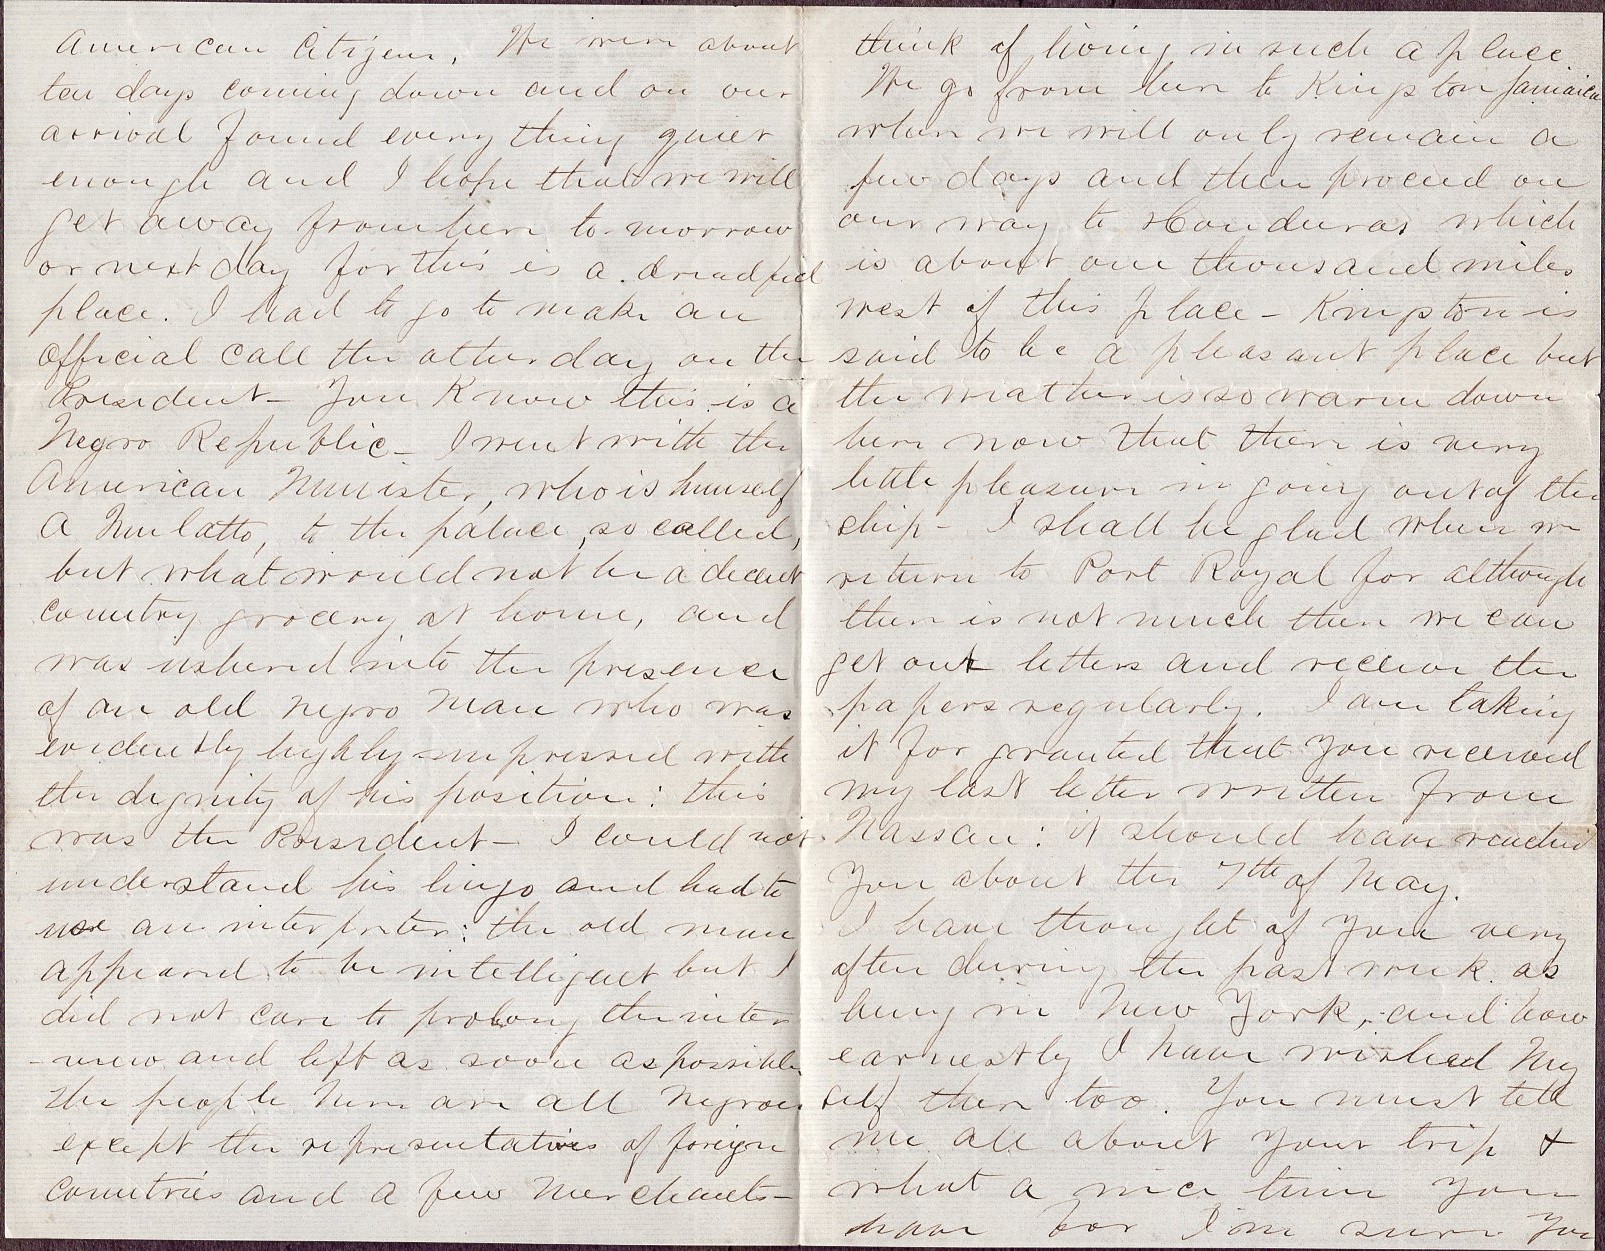 American Citizen. We were about
ten days coming down and on our
arrival found every thing quiet
enough and I hope that we will
get away from here to-morrow
or next day for this is a dreadful
place. I had to go to make an
official call the other day on the
President- You Know this is a
Negro Republic- I went with the
American Minister, who is himself
a Mulatto, to the palace, so called,
but what would not be a decent
country grocery at home, and
was ushered into the presence
of an old negro man who was
evidently highly impressed with
the dignity of his position: this
was the President- I could not
understand his lingo and had to
use an interpreter: the old man
appeared to be intelligent but I
did not care to prolong the inter
-view and left as soon as possible
The people here are all negroes
except the representatives of foreign
countries and a few merchants-
think of living in such a place.
We go from here to Kingston Jamaica
where we will only remain a
few days and then proceed on
our way to Honduras which
is about one thousand miles
west of this place- Kingston is
said to be a pleasant place but
the weather is so warm down
here now that there is very
little pleasure in going out of the
ship- I shall be glad when we
return to Port Royal for although
there is not much there we can
get our letters and receive the
papers regularly. I am taking
it for granted that you received
my last letter written from
Nassau: it should have reached
you about the 7th of May.
I have thought of you very
often during the past week as
being in New York, and how
earnestly I have wished my
self there too. You must tell
me all about your trip &
what a nice time you
have for I'm sure you